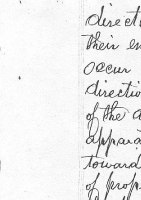 directi
their en
occur
direction
of the a
appara
toward
of prop